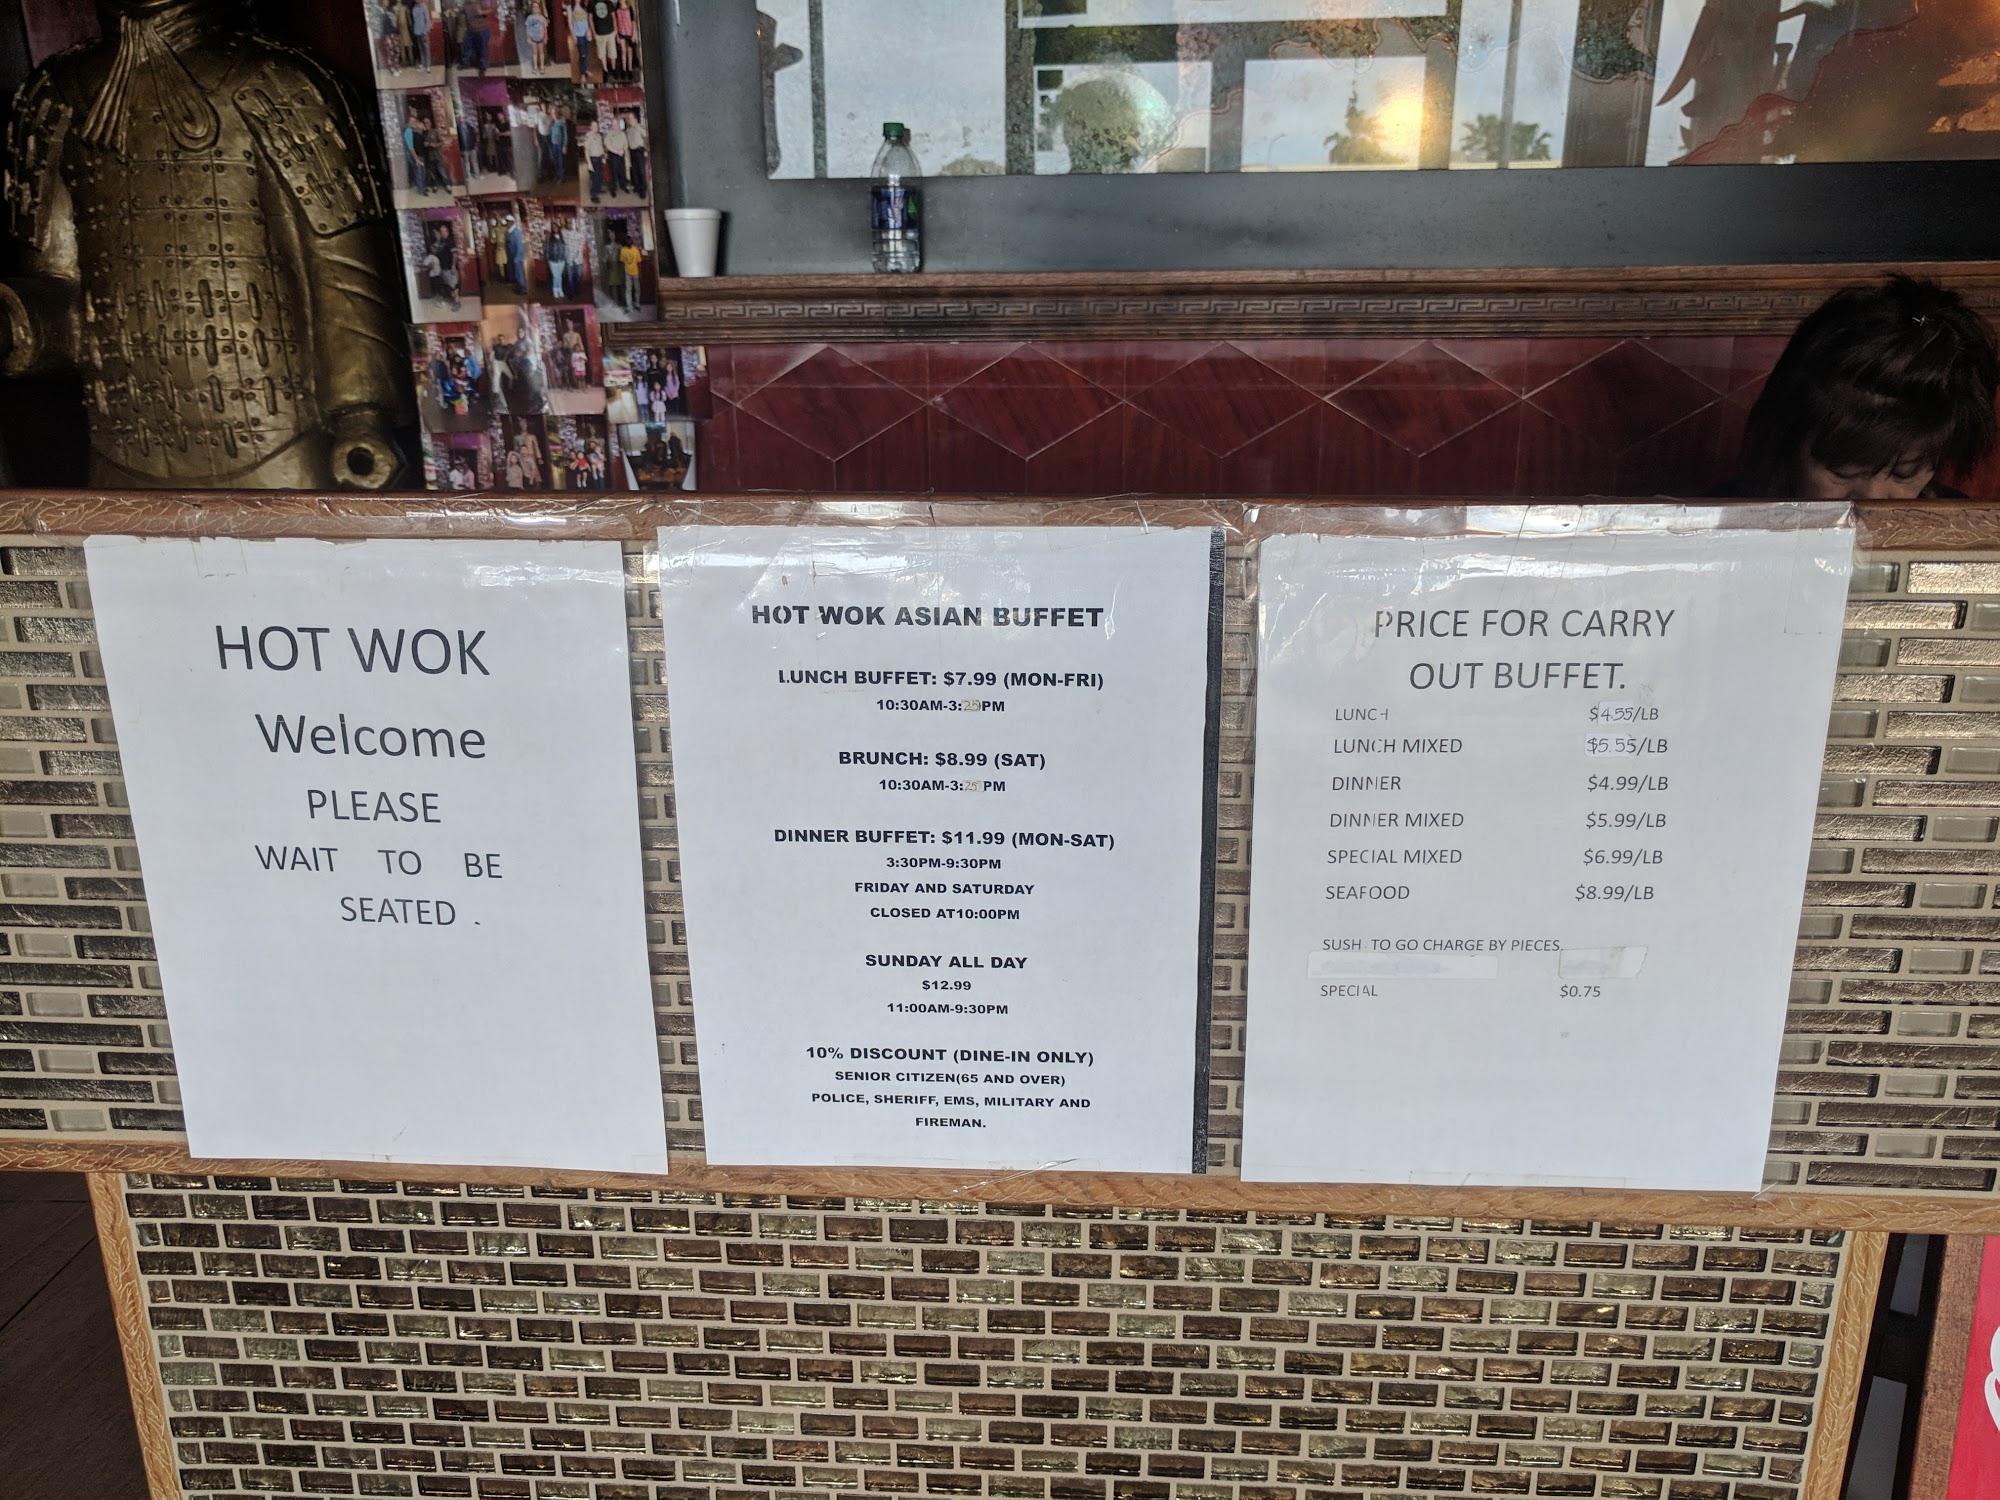 HOT WOK
Welcome
PLEASE
WAIT TO BE
SEATED .
HOT WOK ASIAN BUFFET
LUNCH BUFFET: $7.99 (MON-FRI)
10:30AM-3:25PM
BRUNCH: $8.99 (SAT)
10:30AM-3:25PM
DINNER BUFFET: $11.99 (MON-SAT)
3:30PM-9:30PM
FRIDAY AND SATURDAY
CLOSED AT10:00PM
SUNDAY ALL DAY
$12.99
11:00AM-9:30PM
10% DISCOUNT (DINE-IN ONLY)
SENIOR CITIZEN(65 AND OVER)
POLICE, SHERIFF, EMS, MILITARY AND
FIREMAN.
PRICE FOR CARRY
OUT BUFFET.
LUNCH $4.55/LB
LUNCH MIXED $5.55/LB
DINNER $4.99/LB
DINNER MIXED $5.99/LB
SPECIAL MIXED $6.99/LB
SEAFOOD $8.99/LB
SUSHI TO GO CHARGE BY PIECES.
SPECIAL $0.75